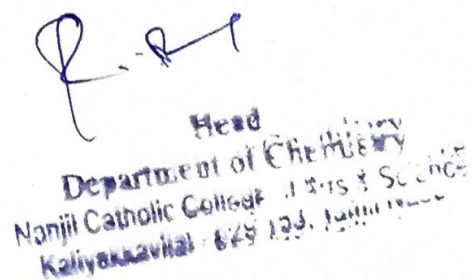 Head
Department of Chemistry
Nanjil Catholic College Arts & Science
Kaliyakkavilai - 629 153.